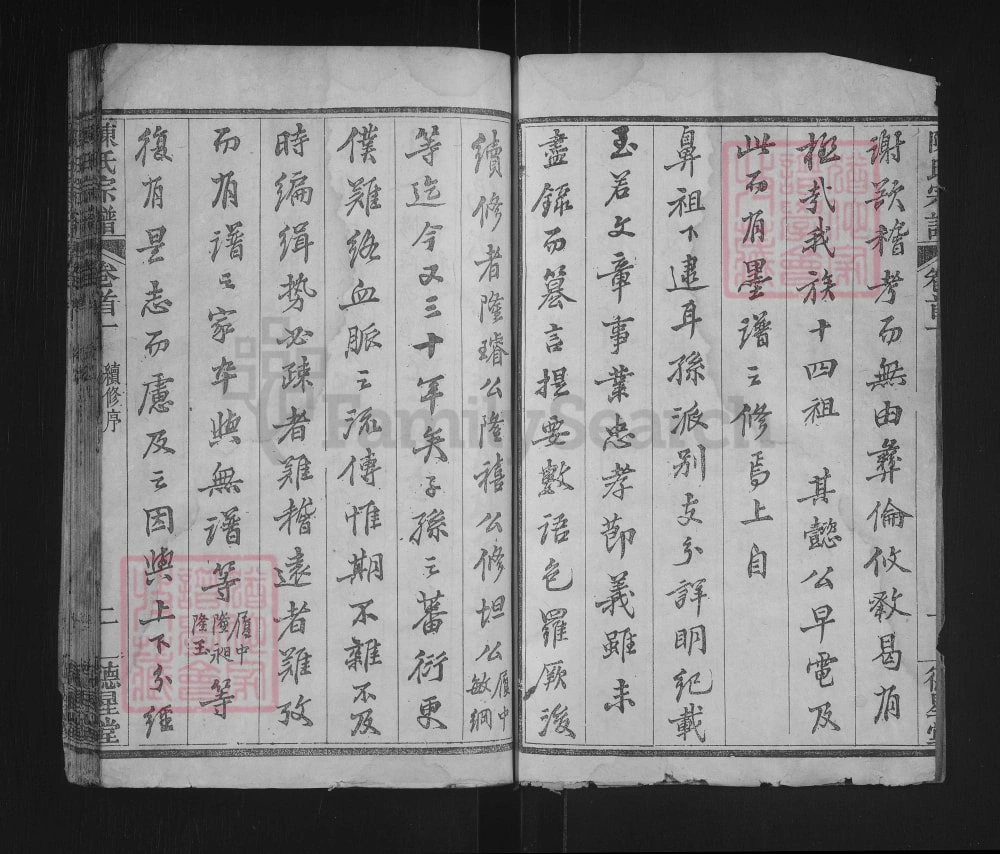 陳氏宗譜 卷首一
謝欵稽考而無由彝倫攸敘曷有
極哉我族十四祖 其懿公早電及
此而有墨譜之修焉上自
鼻祖下逮耳孫派別支分詳明紀載
至若文章事業忠孝節義雖未
盡錄而墓言提要數語包羅厥後
續修者隆璿公隆禧公修坦公敏綱履中
等迄今又三十年矣子孫之蕃衍更
僕難絡血脈之流傳惟期不雜不及
時編緝勢必疎者難稽遠者難攷
而有譜之家卒與無譜等履中隆昶隆玉等
復有是志而慮及之因與上下分經
陳氏宗譜 卷首一 續修序 二 德星堂
FamilySearch